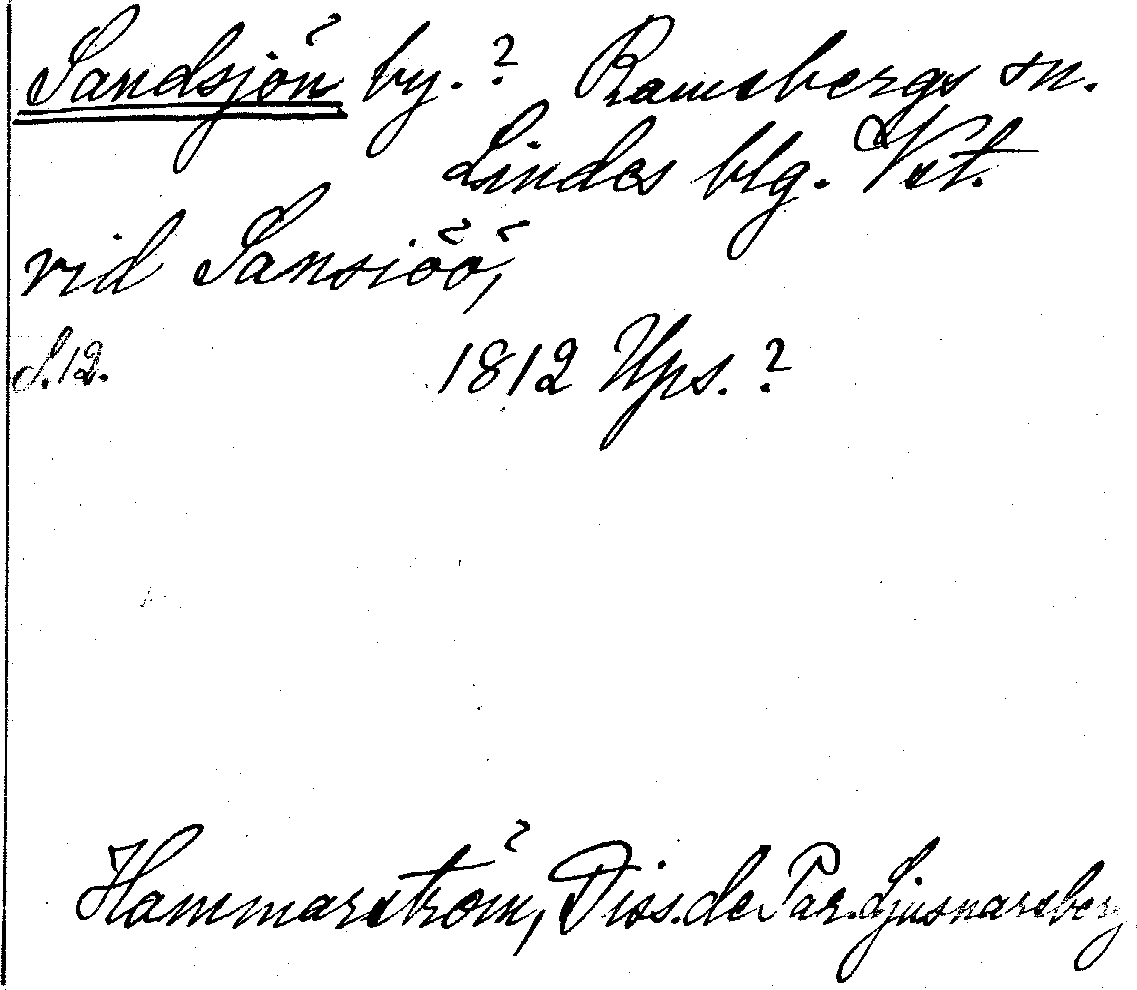 Sandsjön by.? Ramsbergs sn.
Lindes blg. Vst.
vid Sansiöö,
S.12. 1812 Ups.?
Hammarström, Diss. de Par. Ljusnarsberg